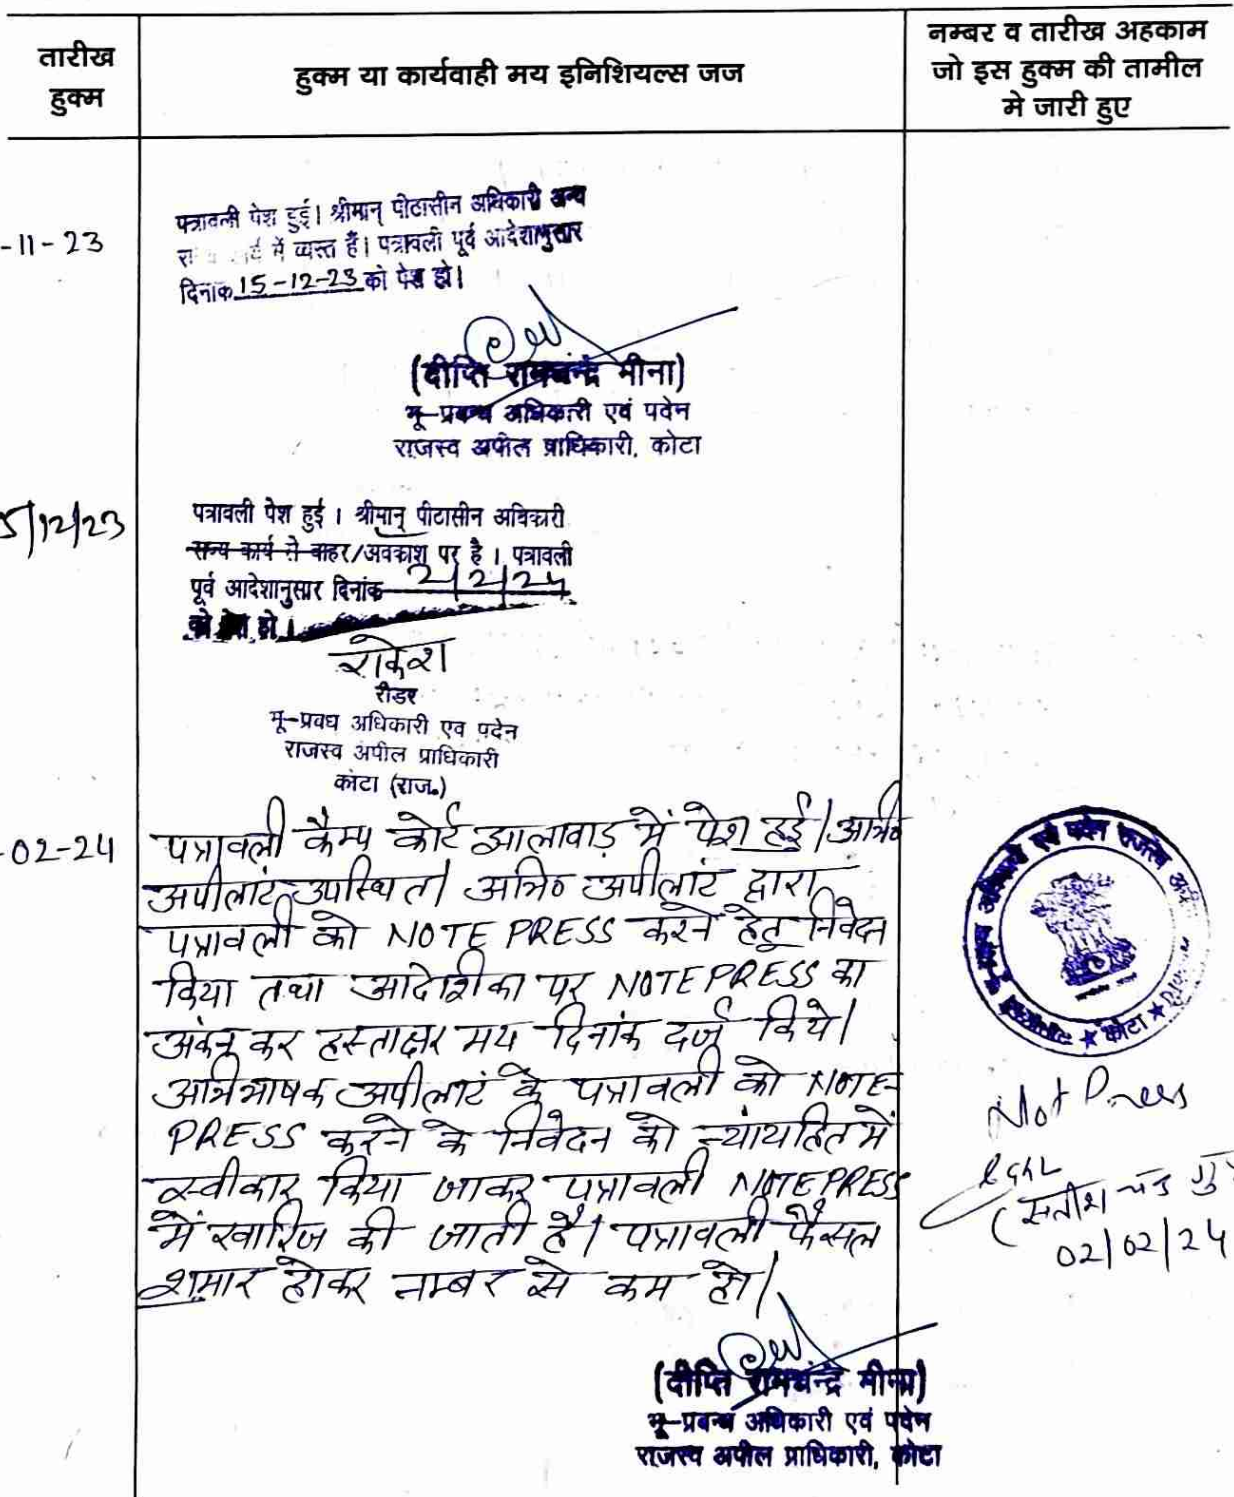 तारीख
हुक्म
हुक्म या कार्यवाही मय इनिशियल्स जज
नम्बर व तारीख अहकाम
जो इस हुक्म की तामील
मे जारी हुए
-11-23
पत्रावली पेश हुई। श्रीमान् पीठासीन अधिकारी अन्य
में व्यस्त हैं। पत्रावली पूर्व आदेशानुसार
दिनांक 15-12-23 को पेश हो।
(दीप्ति रामचन्द्र मीना)
भू-प्रबन्ध अधिकारी एवं पदेन
राजस्व अपील प्राधिकारी, कोटा
5/12/23
पत्रावली पेश हुई । श्रीमान् पीठासीन अधिकारी
राज्य कार्य से बाहर/अवकाश पर है । पत्रावली
पूर्व आदेशानुसार दिनांक 2/2/24
को पेश हो ।
राकेश
रीडर
भू-प्रबंध अधिकारी एवं पदेन
राजस्व अपील प्राधिकारी
कोटा (राज.)
-02-24
पत्रावली कैम्प कोर्ट झालावाड़ में पेश हुई। अभि०
अपीलांट उपस्थित। अभि० अपीलांट द्वारा
पत्रावली को NOTE PRESS करने हेतु निवेदन
किया तथा आदेशिका पर NOTE PRESS का
अंकन कर हस्ताक्षर मय दिनांक दर्ज किये।
अभिभाषक अपीलांट के पत्रावली को NOTE-
PRESS करने के निवेदन को न्यायहित में
स्वीकार किया जाकर पत्रावली NOTE PRESS
में खारिज की जाती है। पत्रावली फैसल
शुमार होकर नम्बर से कम हो।
Not Press
(सतीश चंद गु
02/02/24
(दीप्ति रामचन्द्र मीना)
भू-प्रबन्ध अधिकारी एवं पदेन
राजस्व अपील प्राधिकारी, कोटा